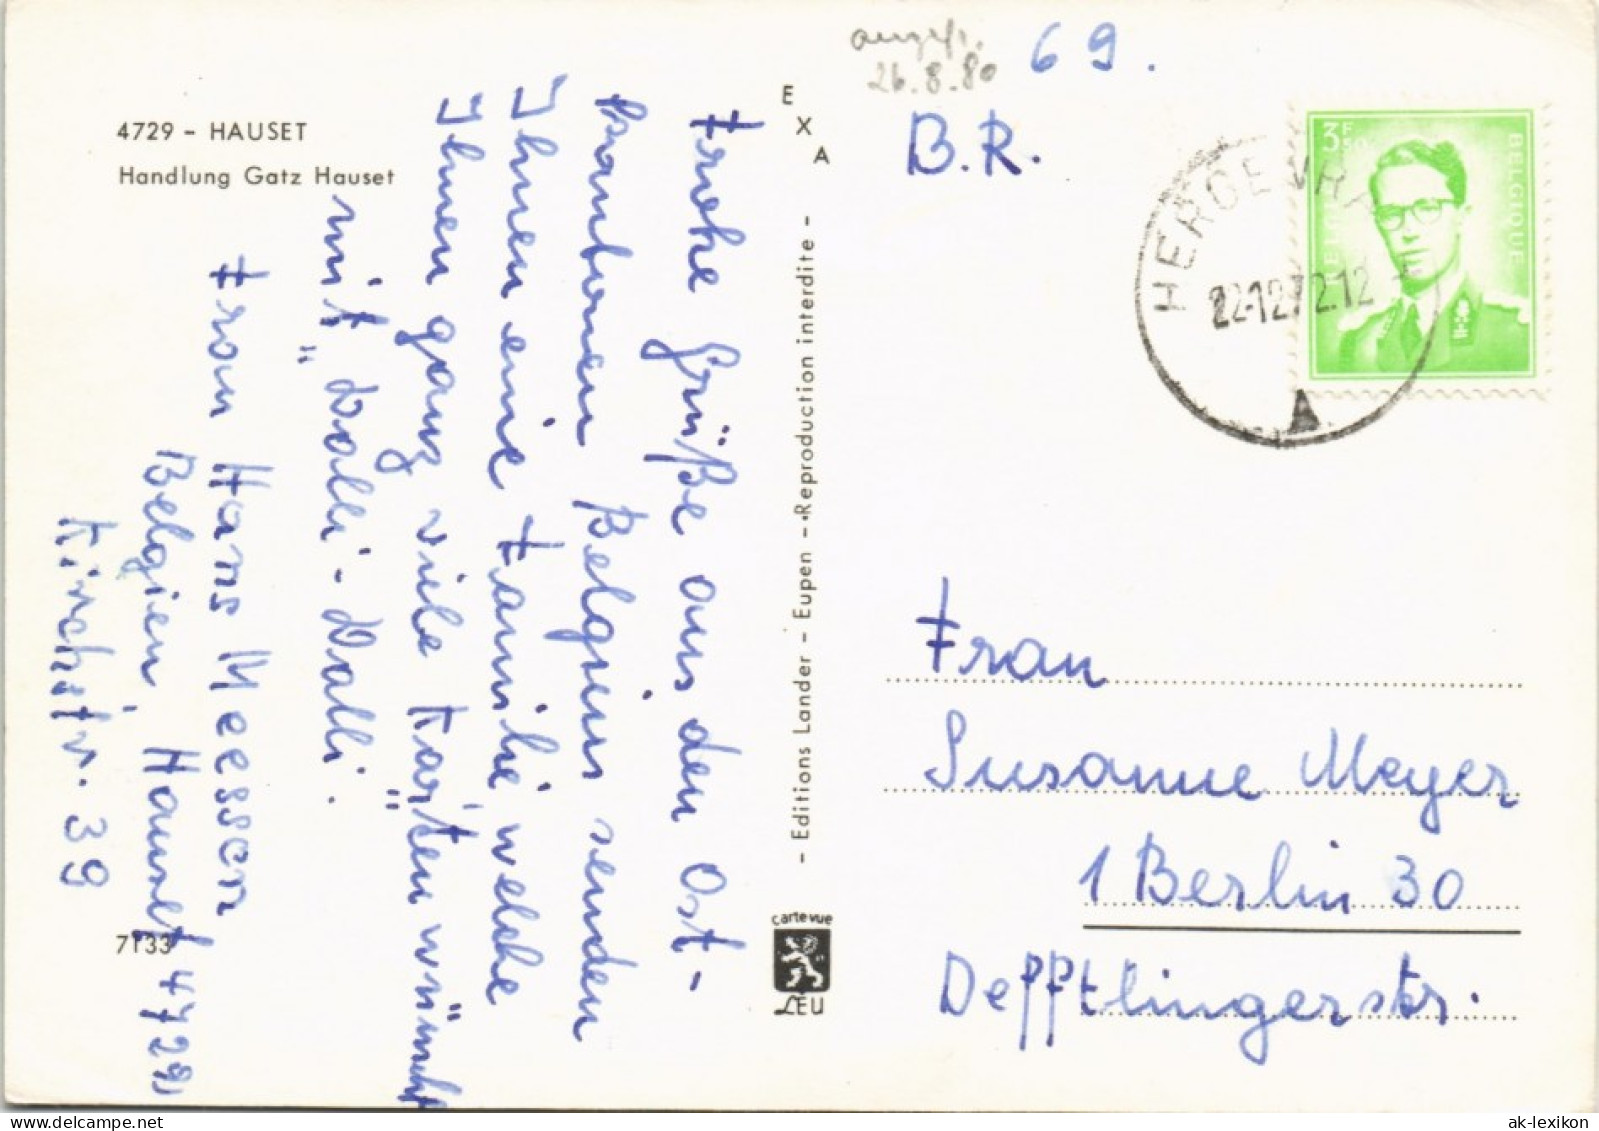 4729 - HAUSET
Handlung Gatz Hauset
Frohe Grüße aus den Ost-
kantonen Belgiens senden
Ihnen eine Familie welche
Ihnen ganz viele Karten wünscht
mit "Dalli-Dalli.
Frau Hans Meessen
Belgien, Hauset 4729
Kirchstr. 39
7133
E
X
A
- Editions Lander - Eupen - Reproduction interdite -
carte vue
LEU
26.8.80
69.
B.R.
3F50
BELGIQUE
HERGENRA
22-12.72.12
A
Frau
Susanne Meyer
1 Berlin 30
Deffptlingerstr.
ak-lexikon